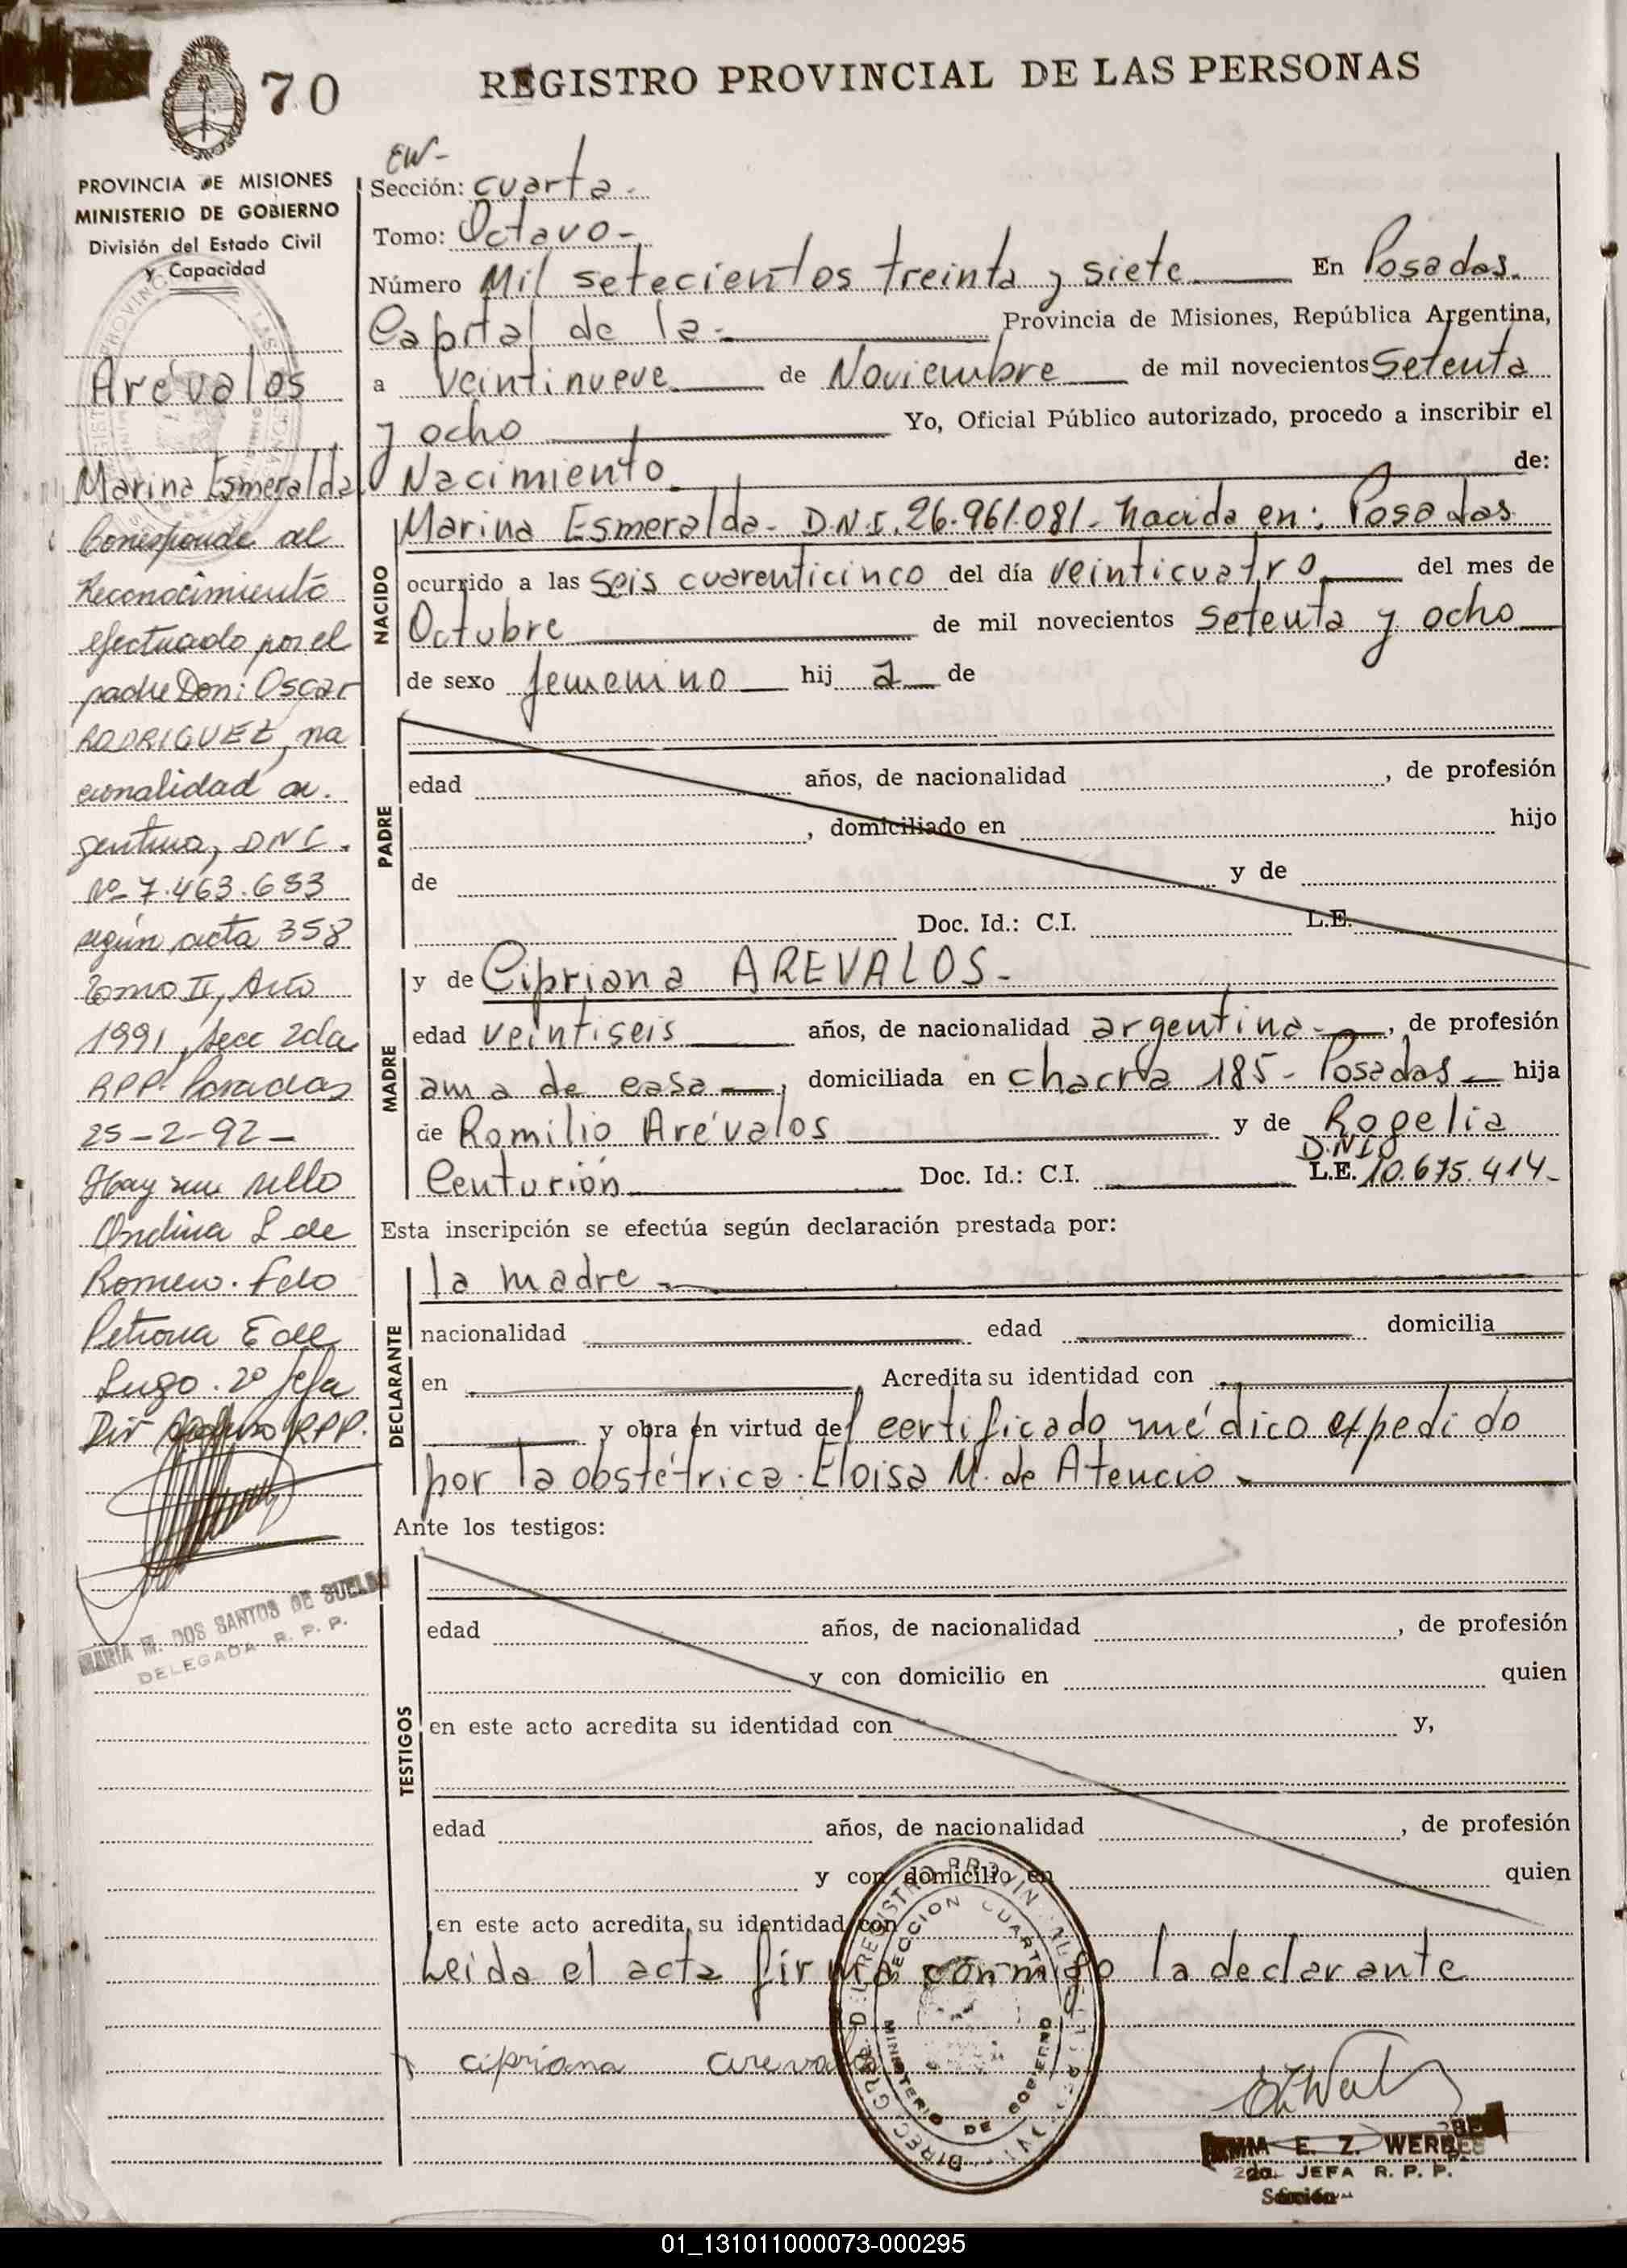 70
REGISTRO PROVINCIAL DE LAS PERSONAS
PROVINCIA DE MISIONES
MINISTERIO DE GOBIERNO
División del Estado Civil
y Capacidad
Arévalos
Marina Esmeralda
Corresponde al
Reconocimiento
efectuado por el
padre Don: Oscar
RODRIGUEZ, na
cionalidad ar.
gentina, DNI.
Nº 7.463.633
según acta 358
Tomo II, Año
1991, Secc 2da
RPP. Posadas
25-2-92-
Hay un sello
Ondina L de
Romero. Fdo
Petrona E de
Lugo. 2º Jefa
RPP.
MARIA M. DOS SANTOS DE SUELDO
DELEGADA R. P. P.
EW-
Sección: cuarta.
Tomo: Octavo-
Número Mil setecientos treinta y siete En Posadas.
Capital de la- Provincia de Misiones, República Argentina,
a veintinueve de Noviembre de mil novecientos Setenta
y ocho Yo, Oficial Público autorizado, procedo a inscribir el
Nacimiento de:
NACIDO
Marina Esmeralda- D.N.I. 26.961.081- nacida en: Posadas
ocurrido a las seis cuarenticinco del día veinticuatro del mes de
Octubre de mil novecientos setenta y ocho
de sexo femenino hij a de
PADRE
edad años, de nacionalidad , de profesión
, domiciliado en hijo
de y de
Doc. Id.: C.I. L.E.
MADRE
y de Cipriana AREVALOS-
edad veintiseis años, de nacionalidad argentina- , de profesión
ama de casa , domiciliada en chacra 185- Posadas hija
de Romilio Arévalos y de Rogelia
D.N.I.
Centurión Doc. Id.: C.I. L.E. 10.675.414-
Esta inscripción se efectúa según declaración prestada por:
DECLARANTE
la madre
nacionalidad edad domicilia
en Acredita su identidad con
y obra en virtud del certificado médico expedido
por la obstétrica: Eloisa M. de Atencio
Ante los testigos:
TESTIGOS
edad años, de nacionalidad , de profesión
y con domicilio en quien
en este acto acredita su identidad con y,
edad años, de nacionalidad , de profesión
y con domicilio en quien
en este acto acredita su identidad con
Leida el acta firma conmigo la declarante
cipriana arevalo
SECCION CUARTA
MINISTERIO DE GOBIERNO
E. Z. WERBES
2da. JEFA R. P. P.
Sección
01_131011000073-000295